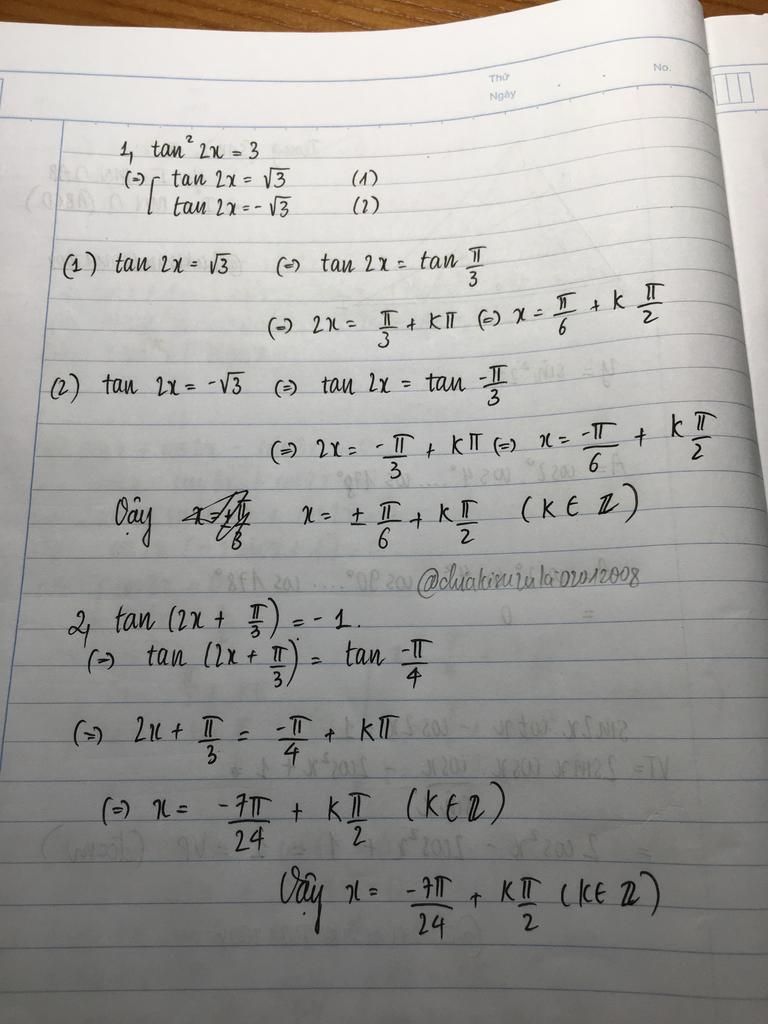 Thứ
Ngày
No.
1, tan² 2x = 3
(=) [ tan 2x = √3 (1)
tan 2x = - √3 (2)
(1) tan 2x = √3 (=) tan 2x = tan π/3
(=) 2x = π/3 + kπ (=) x = π/6 + k π/2
(2) tan 2x = -√3 (=) tan 2x = tan -π/3
(=) 2x = -π/3 + kπ (=) x = -π/6 + k π/2
Vậy x = ± π/6 + k π/2 (k ∈ ℤ)
2, tan (2x + π/3) = - 1.
(=) tan (2x + π/3) = tan -π/4
(=) 2x + π/3 = -π/4 + kπ
(=) x = -7π/24 + k π/2 (k ∈ ℤ)
Vậy x = -7π/24 + k π/2 (k ∈ ℤ)